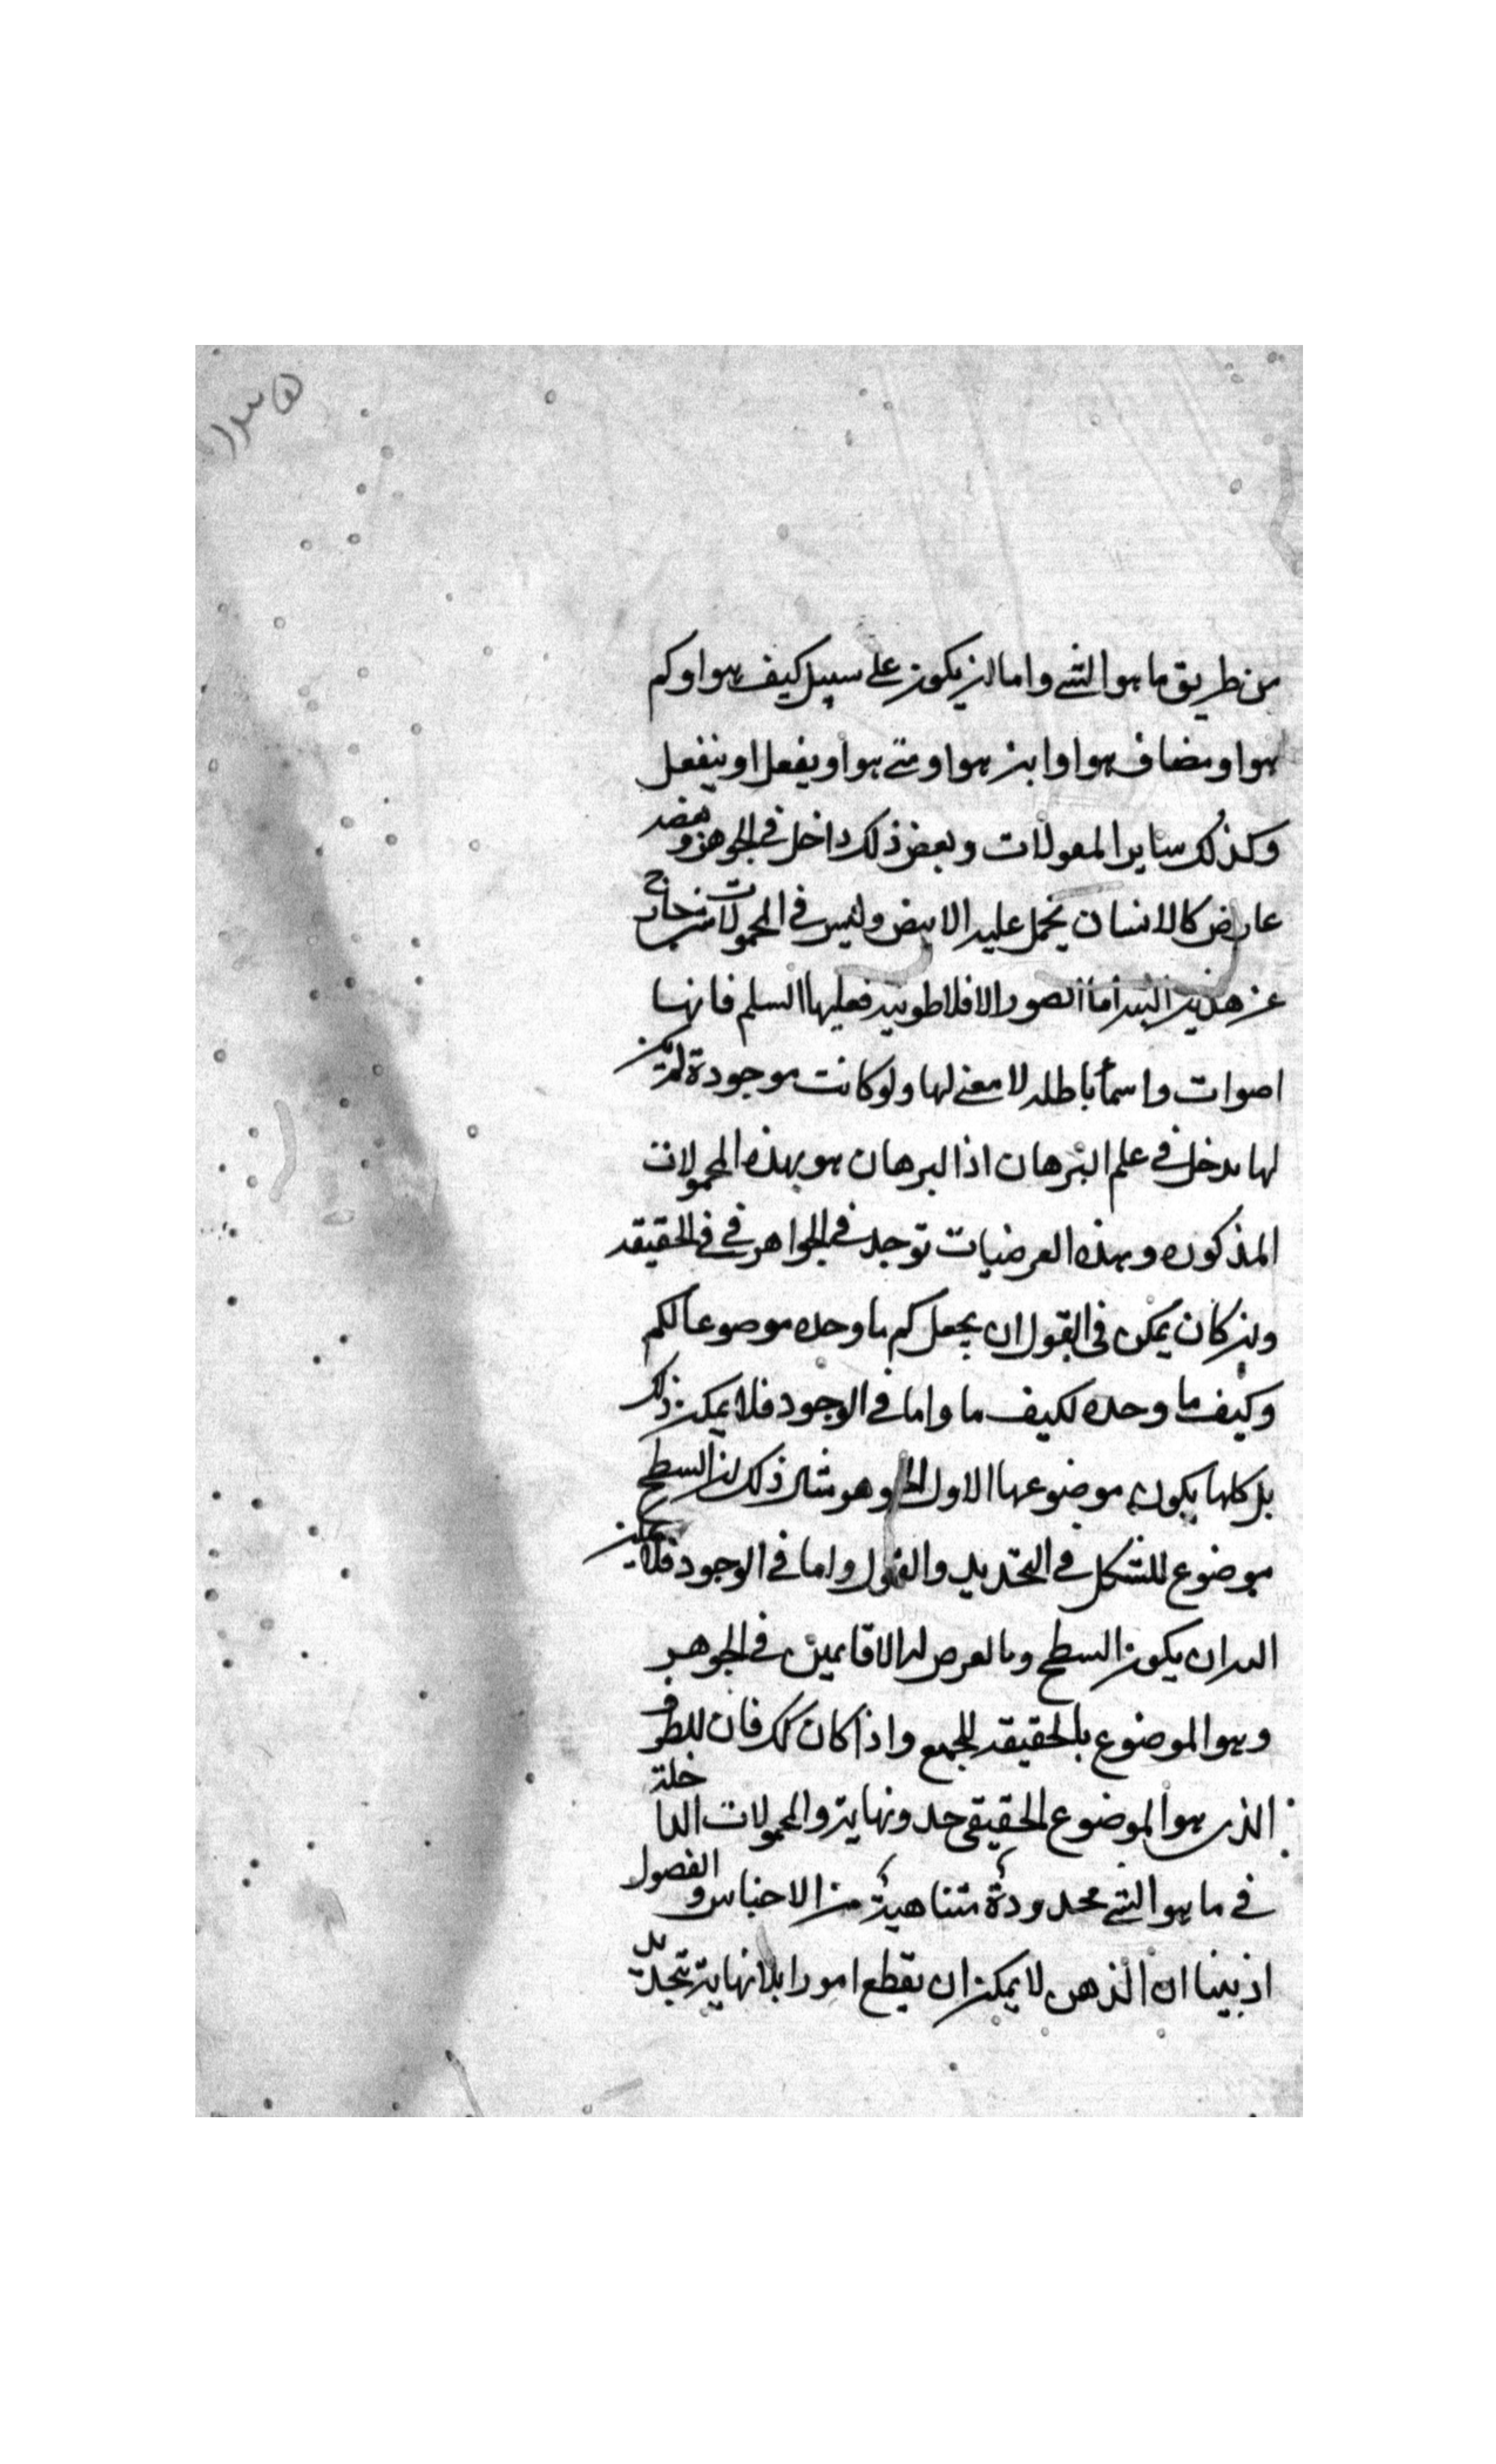 من طريق ما هو الشي واما ان يكون على سبيل كيف هو او كم
هو او مضاف هو او اين هو او متى هو او يفعل او ينفعل
وكذلك ساير المعولات وبعض ذلك داخل في الجوهر وبعضه
عارض كالانسان يحمل عليه الابيض وليس في المحمولات شي خارج
عن هذين البته اما الصور الافلاطونيه فعليها السلم فانها
اصوات واسمأ باطله لا معنى لها ولو كانت موجودة لم يكن
لها مدخل في علم البرهان اذا البرهان هو بهذه المحمولات
المذكوره وبهذه العرضيات توجد في الجواهر في في الحقيقه
وان كان يمكن في القول ان يجعل كم ما وحده موصوعا لكم
وكيف ما وحده لكيف ما واما في الوجود فلا يمكن ذلك
بل كلها يكون موضوعها الاول وهو مثال ذلك ان السطح
موضوع للشكل في التحديد والقول واما في الوجود فلا يمكن
البه ان يكون السطح وبالعرض له الا قايمين في الجوهر
وهو الموضوع بالحقيقه للجميع واذا كان كك فان للطرف
الذي هو الموضوع الحقيقي حد ونهاية والمحمولات الداخلة
في ما هو الشي محدودة متناهية من الاجناس والفصول
اذ بينا ان الذهن لا يمكن ان يقطع امورا بلا نهاية بتجديد